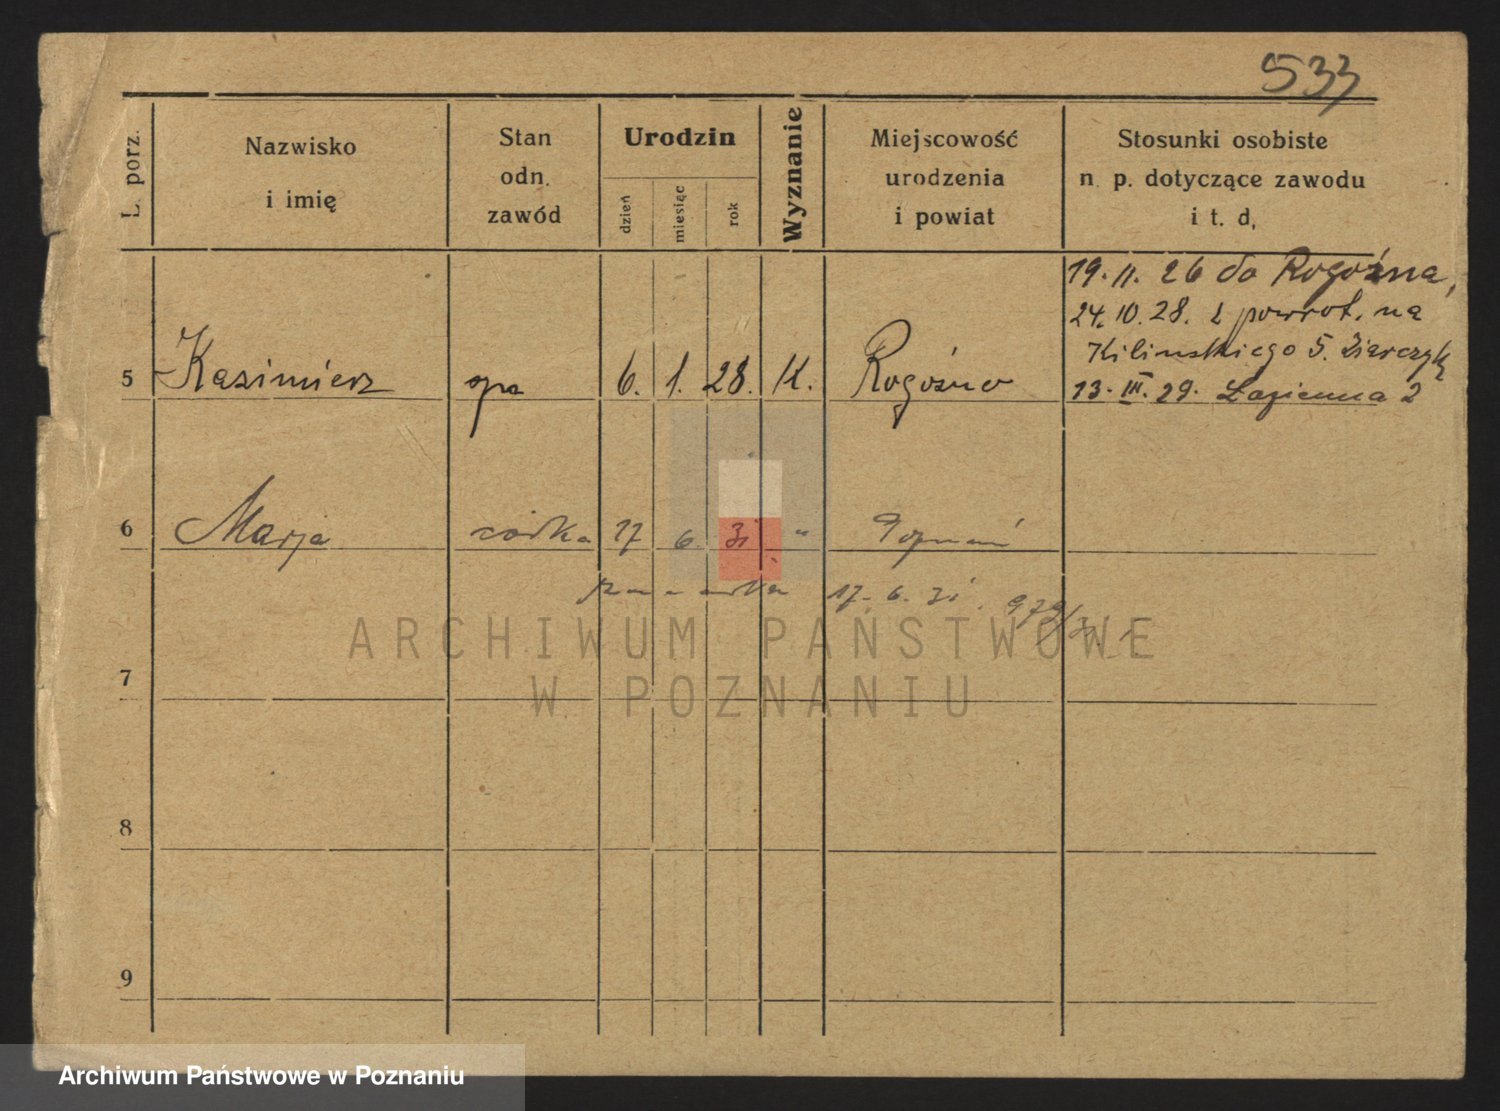 533
L. porz.
Nazwisko
i imię
Stan
odn.
zawód
Urodzin
dzień
miesiąc
rok
Wyznanie
Miejscowość
urodzenia
i powiat
Stosunki osobiste
n. p. dotyczące zawodu
i t. d,
19. 11. 26 do Rogoźna,
24. 10. 28. z powrot. na
Kilinskiego 5.
5 Kazimierz 6. 1. 28. K. Rogoźno 13. III. 29. Łazienna 2
6 Marja córka 17 6. 31. " Poznań
17. 6. 31.
ARCHIWUM PAŃSTWOWE
W POZNANIU
7
8
9
Archiwum Państwowe w Poznaniu